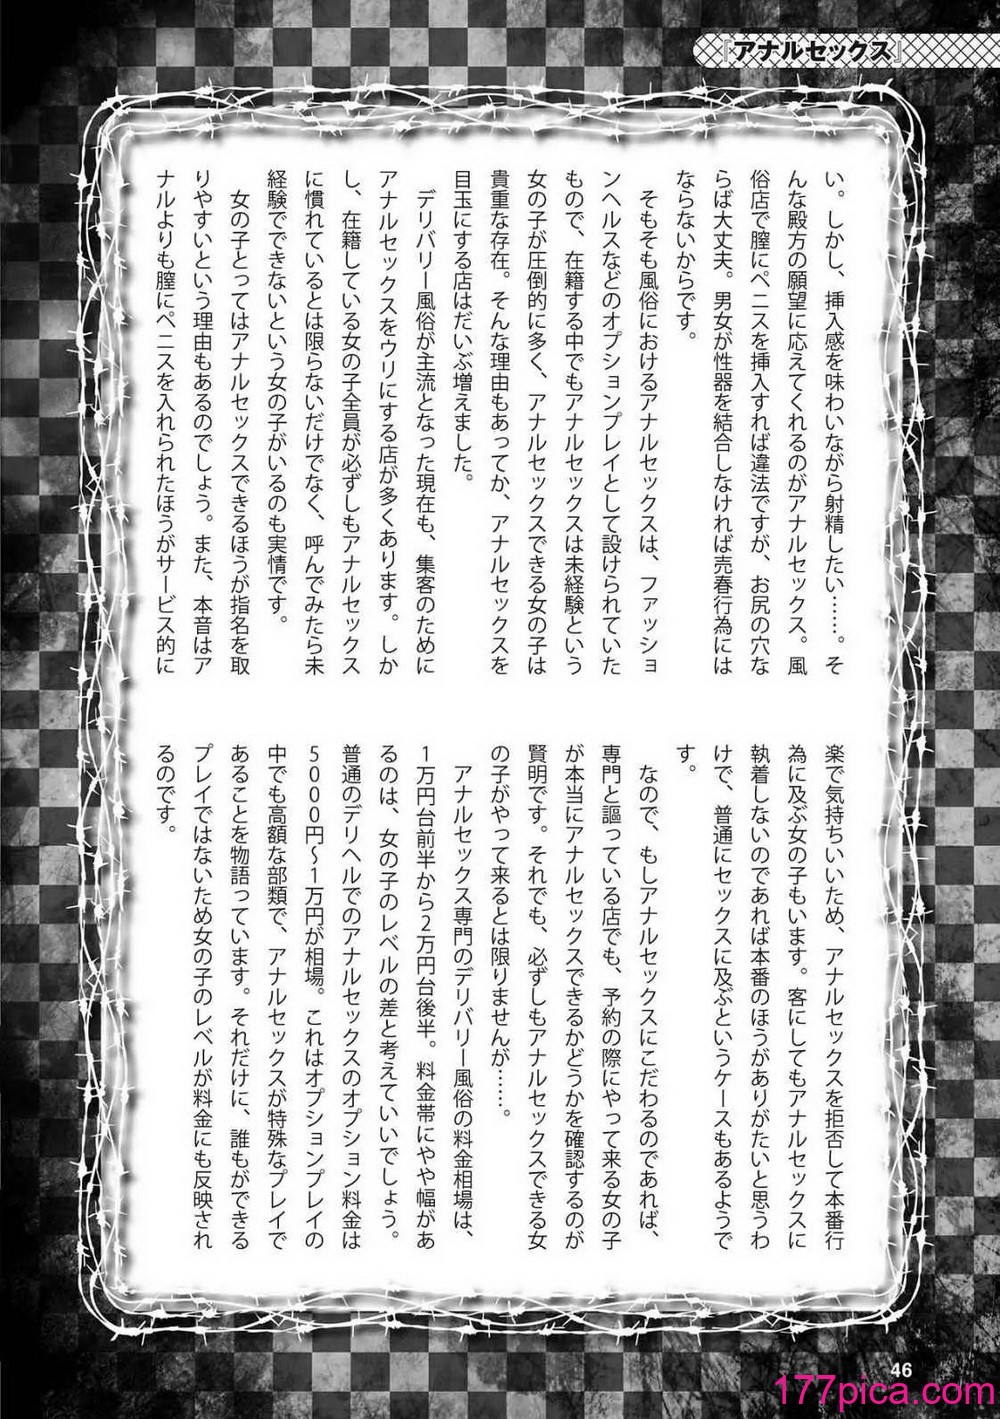 『アナルセックス』
い。しかし、挿入感を味わいながら射精したい……。そ
んな殿方の願望に応えてくれるのがアナルセックス。風
俗店で膣にペニスを挿入すれば違法ですが、お尻の穴な
らば大丈夫。男女が性器を結合しなければ売春行為には
ならないからです。
そもそも風俗におけるアナルセックスは、ファッショ
ンヘルスなどのオプションプレイとして設けられていた
もので、在籍する中でもアナルセックスは未経験という
女の子が圧倒的に多く、アナルセックスできる女の子は
貴重な存在。そんな理由もあってか、アナルセックスを
目玉にする店はだいぶ増えました。
デリバリー風俗が主流となった現在も、集客のために
アナルセックスをウリにする店が多くあります。しか
し、在籍している女の子全員が必ずしもアナルセックス
に慣れているとは限らないだけでなく、呼んでみたら未
経験でできないという女の子がいるのも実情です。
女の子とってはアナルセックスできるほうが指名を取
りやすいという理由もあるのでしょう。また、本音はア
ナルよりも膣にペニスを入れられたほうがサービス的に
楽で気持ちいいため、アナルセックスを拒否して本番行
為に及ぶ女の子もいます。客にしてもアナルセックスに
執着しないのであれば本番のほうがありがたいと思うわ
けで、普通にセックスに及ぶというケースもあるようで
す。
なので、もしアナルセックスにこだわるのであれば、
専門と謳っている店でも、予約の際にやって来る女の子
が本当にアナルセックスできるかどうかを確認するのが
賢明です。それでも、必ずしもアナルセックスできる女
の子がやって来るとは限りませんが……。
アナルセックス専門のデリバリー風俗の料金相場は、
1万円台前半から2万円台後半。料金帯にやや幅があ
るのは、女の子のレベルの差と考えていいでしょう。
普通のデリヘルでのアナルセックスのオプション料金は
5000円〜1万円が相場。これはオプションプレイの
中でも高額な部類で、アナルセックスが特殊なプレイで
あることを物語っています。それだけに、誰もができる
プレイではないため女の子のレベルが料金にも反映され
るのです。
46
177pica.com